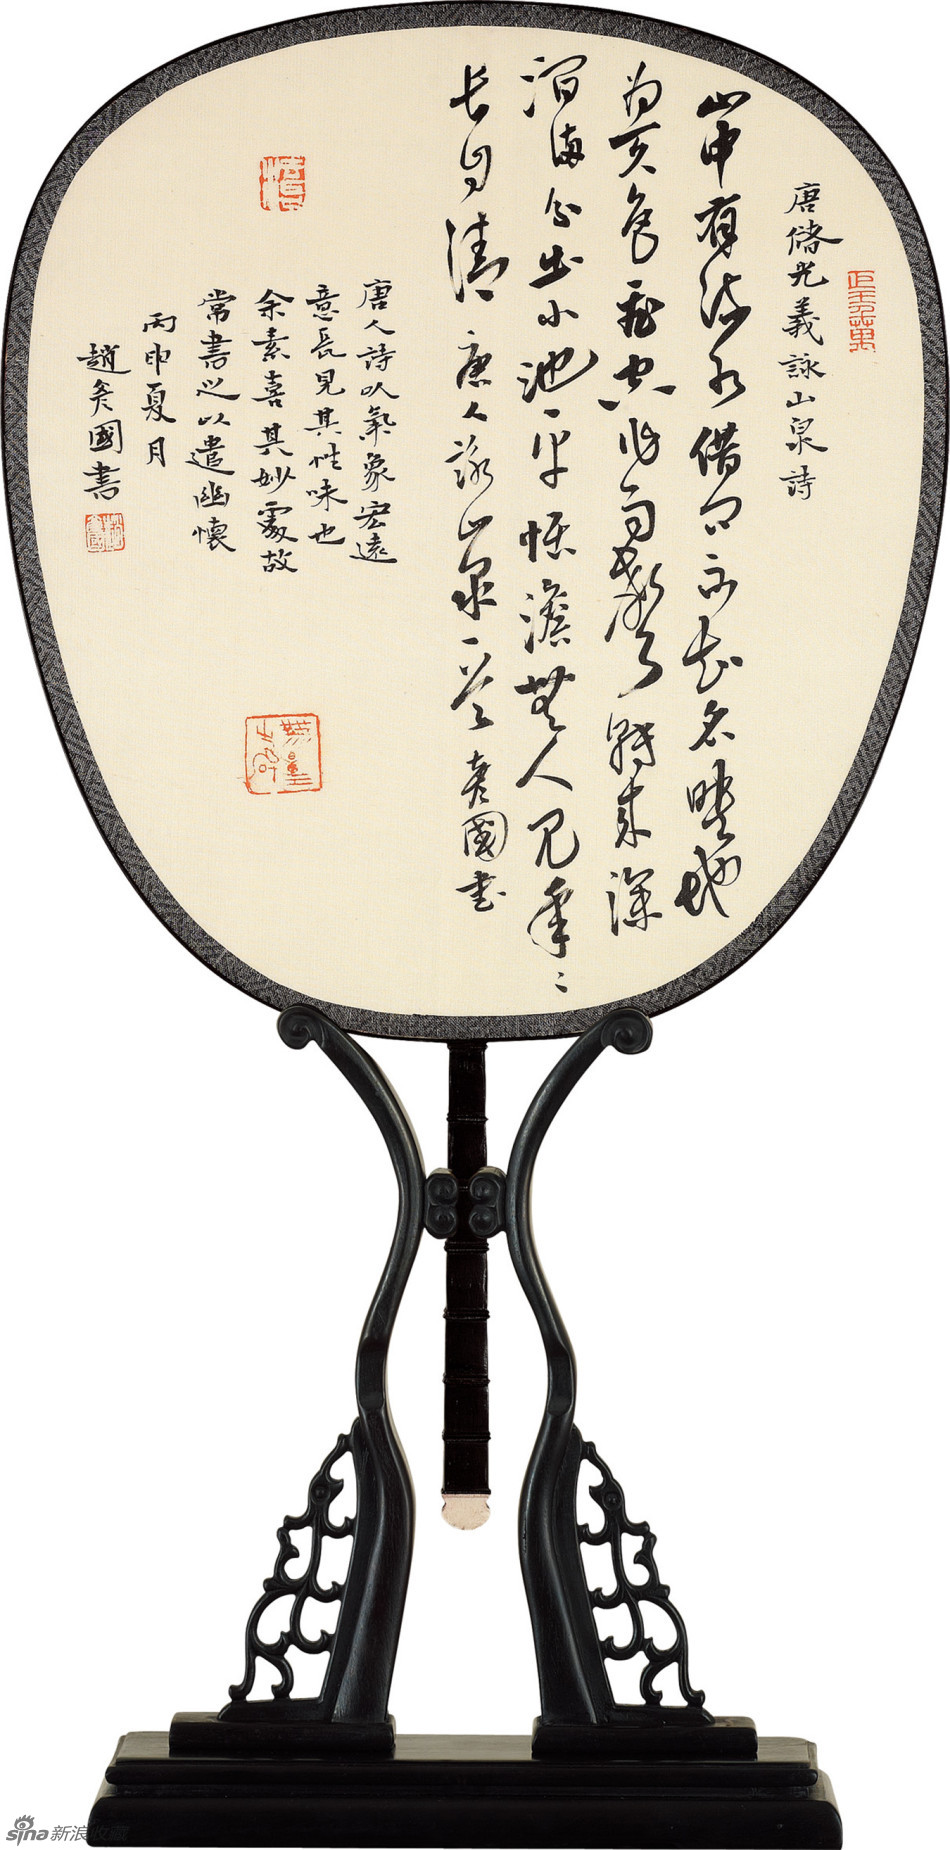 唐儲光義詠山泉詩
山中有流水借問不知名映地
为天色飛空作雨聲轉來深
澗滿分出小池平恬澹無人見年々
長自清唐人詠山泉一首彥國書
唐人詩以氣象宏遠
意長見其性味也
余素喜其妙處故
常書之以遣幽懷
丙申夏月
趙彥國書
sina新浪收藏